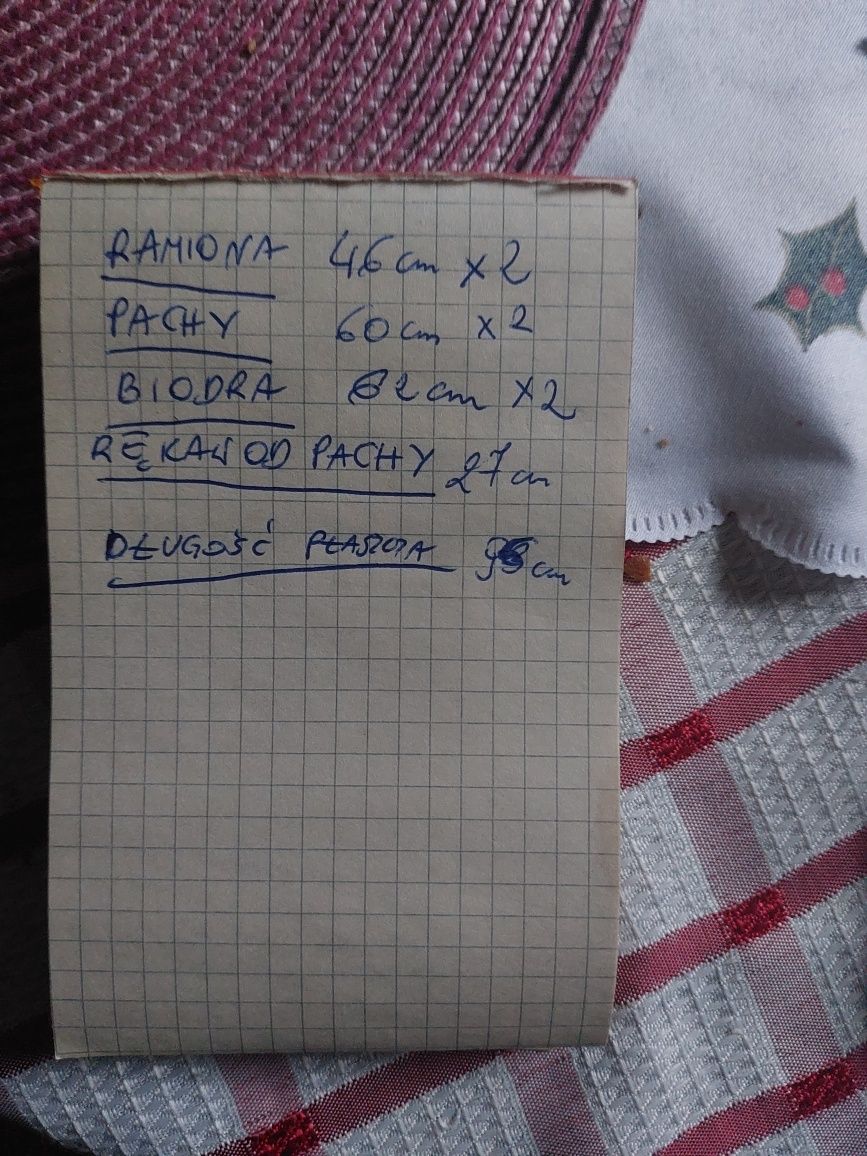 RAMIONA 46 cm x 2
PACHY 60 cm x 2
BIODRA 62 cm x 2
RĘKAW OD PACHY 27 cm
DŁUGOŚĆ PŁASZCZA cm